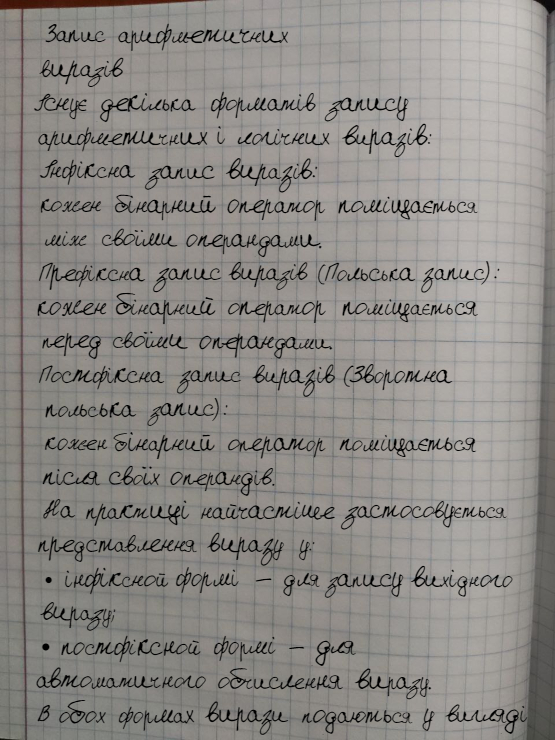 Запис арифметичних
виразів
Існує декілька форматів запису
арифметичних і логічних виразів:
Інфіксна запис виразів:
кожен бінарний оператор поміщається
між своїми операндами.
Префіксна запис виразів (Польська запис):
кожен бінарний оператор поміщається
перед своїми операндами.
Постфіксна запис виразів (Зворотна
польська запис):
кожен бінарний оператор поміщається
після своїх операндів.
На практиці найчастішее застосовується
представлення виразу у:
• інфіксной формі – для запису вихідного
виразу;
• постфіксной формі – для
автоматичного обчислення виразу.
В обох формах вирази подаються у вигляді